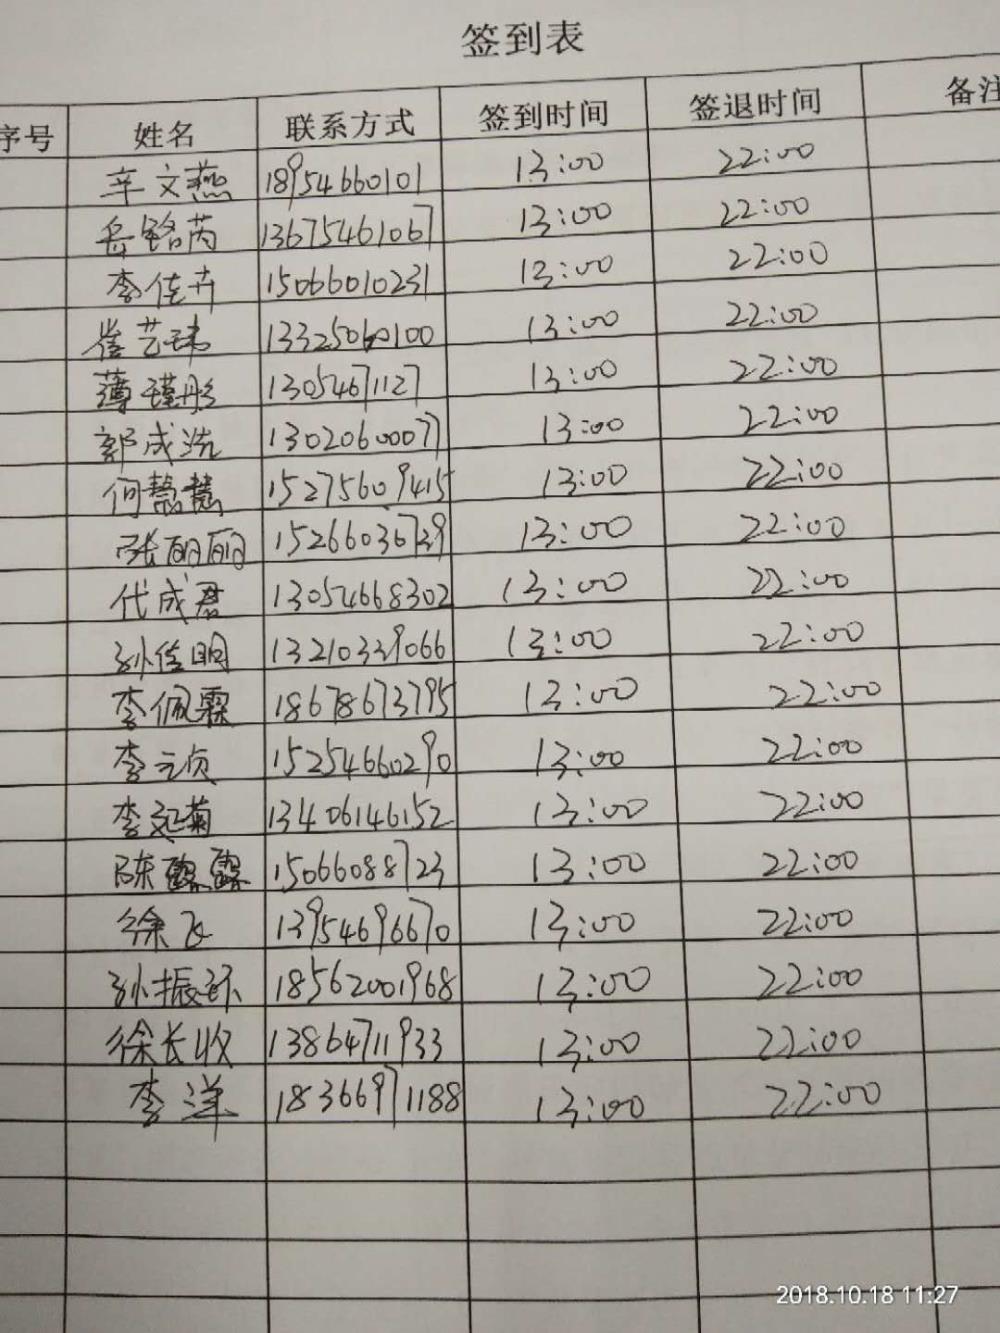 签到表
序号 姓名 联系方式 签到时间 签退时间 备注
辛文燕 18954660101 13:00 22:00
岳铭芮 13675461067 13:00 22:00
李佳卉 15066010231 13:00 22:00
崔艺玮 13325060100 13:00 22:00
薄瑾彤 13054671127 13:00 22:00
郭成浩 13020600077 13:00 22:00
何慧慧 15275609415 13:00 22:00
张丽丽 15266036729 13:00 22:00
代成君 13054668302 13:00 22:00
孙佳明 13210339066 13:00 22:00
李佩霖 18678673795 13:00 22:00
李元贞 15254660290 13:00 22:00
李 菊 13406146152 13:00 22:00
陈露露 15066088723 13:00 22:00
徐飞 13954696670 13:00 22:00
孙振环 18562001968 13:00 22:00
徐长收 13864711933 13:00 22:00
李洋 18366971188 13:00 22:00
2018.10.18 11:27